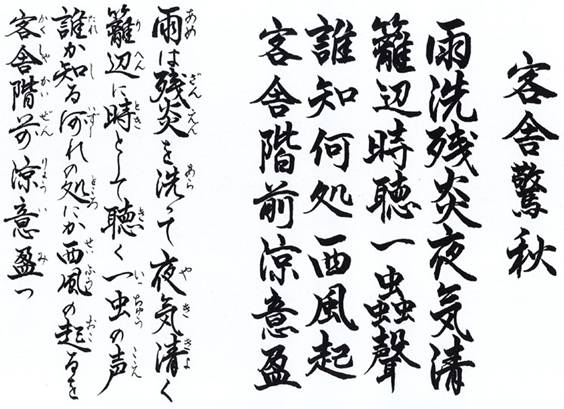 客舎驚秋
雨洗残炎夜気清
籬辺時聴一蟲聲
誰知何処西風起
客舎階前涼意盈
雨は残炎を洗って夜気清く
籬辺に時として聴く一虫の声
誰か知る何れの処にか西風の起るを
客舎階前涼意盈つ